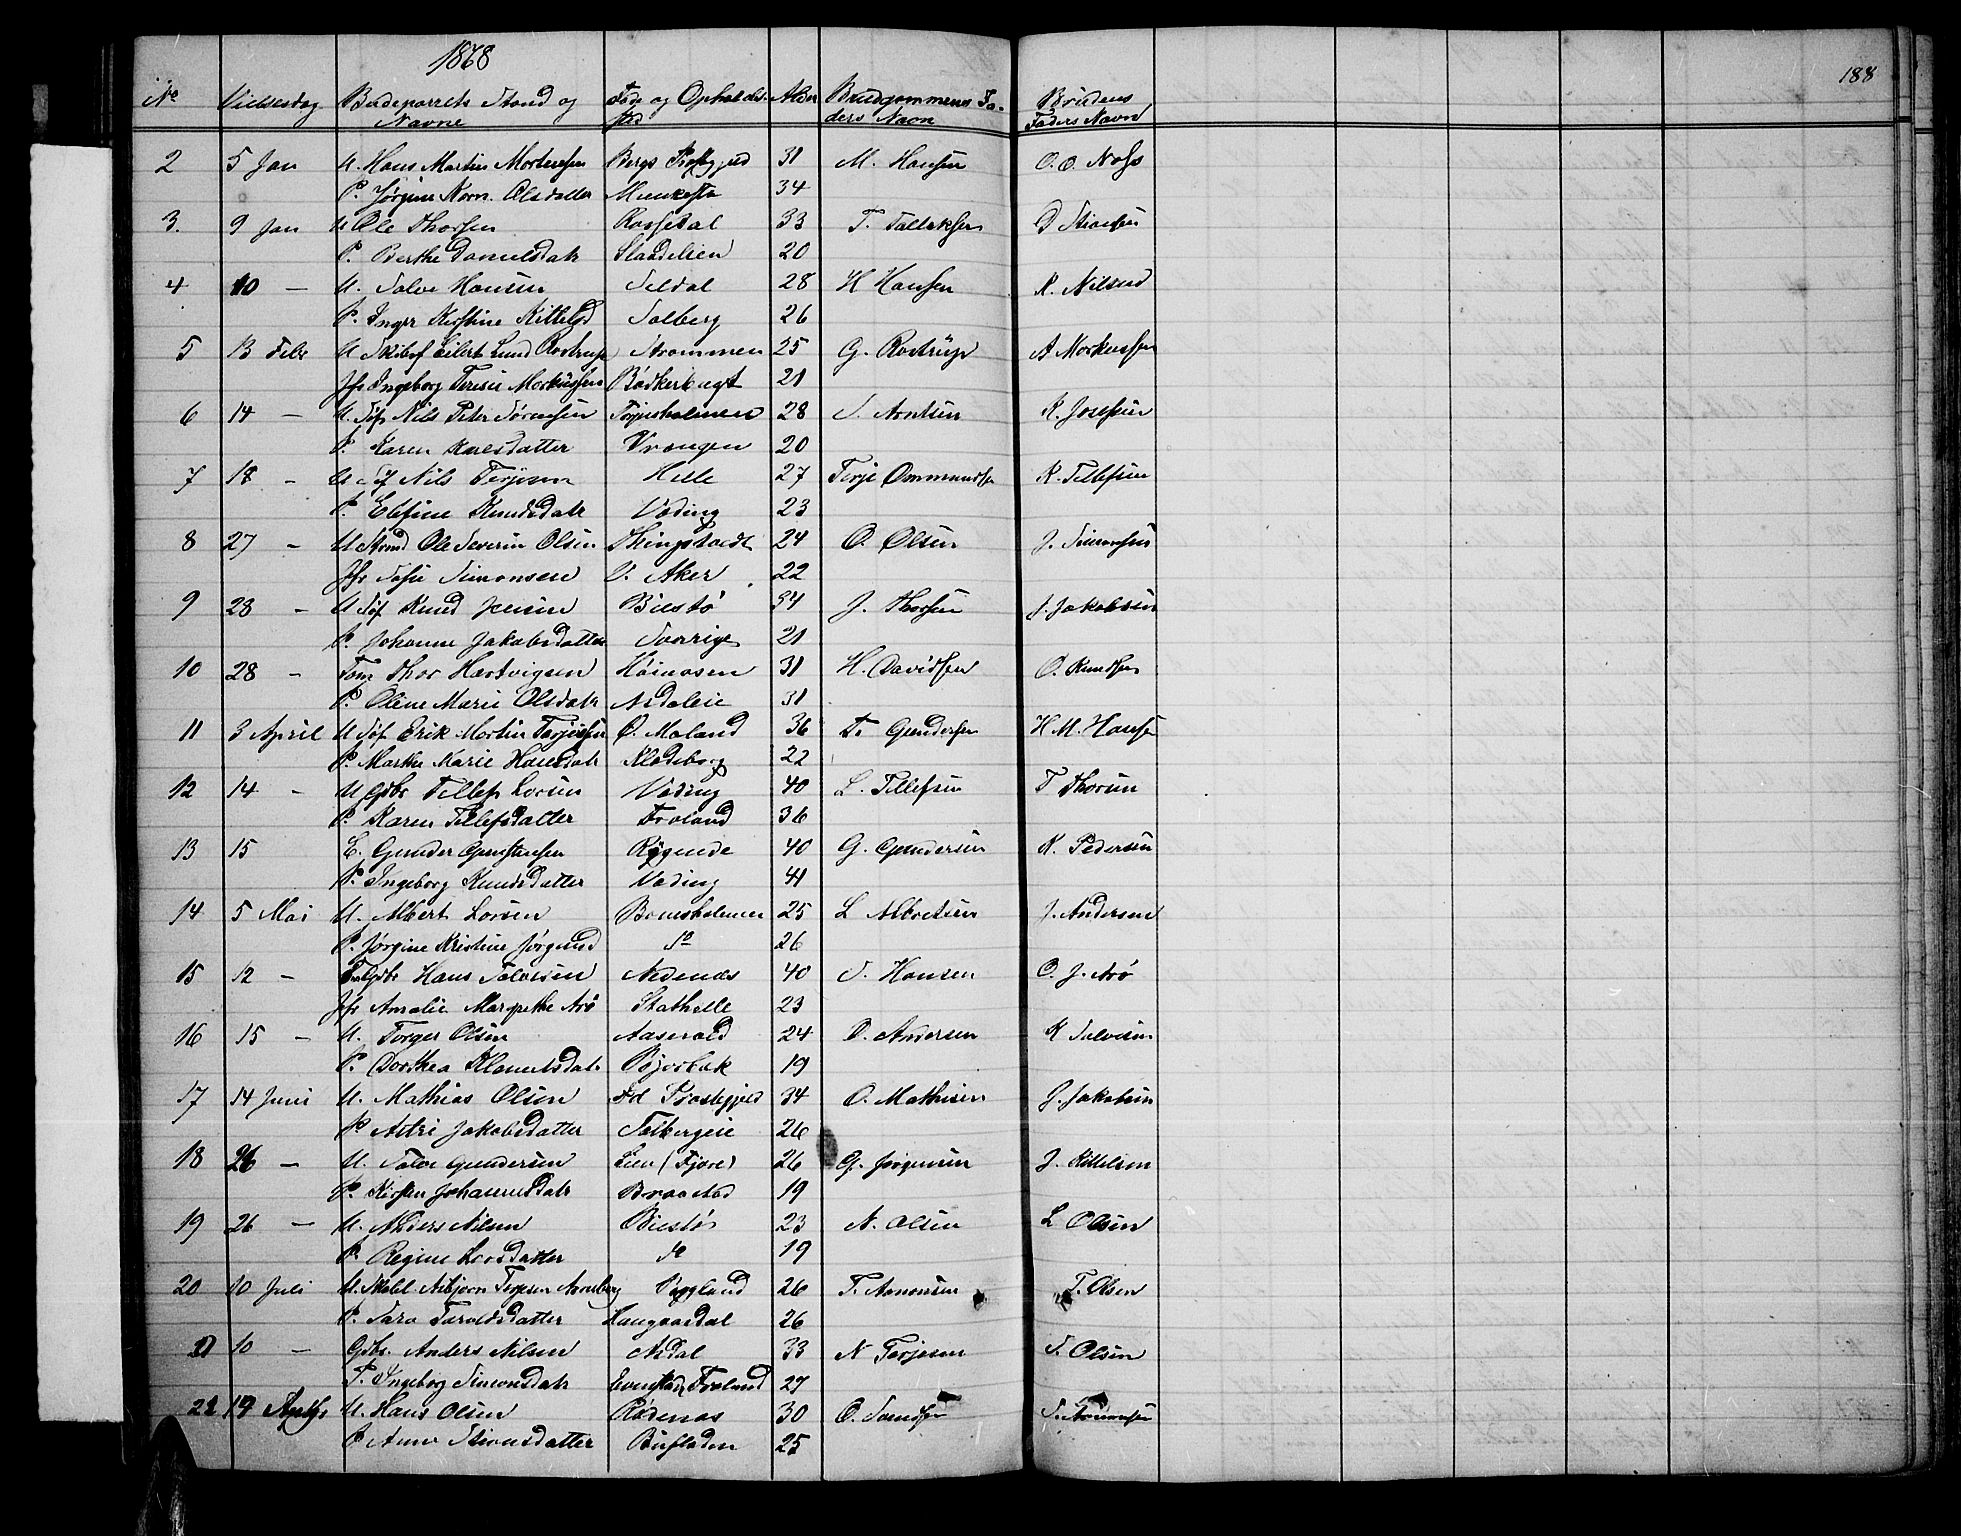 1878
188
No Vielsesdag Brudeparrets Stand og Navne Føde og Opholdssted Alder Brudgommens Faders Navn Brudens Faders Navn
2 5 Jan U. Hans Martin Mortensen Bergs Prestgjeld 31 M. Hansen O. O. Næss
P. Jørgine Olsdatter 34
3. 9 Jan U Ole Thorsen Rossedal 33 T. Tallaksen D
P. Berthe Danielsdatr 20
4 10 — U. Salve Hansen Seldal 28 H Hansen K. Nilsen
P. Inger Kirstine Kittelsd Solberg 26
5 13 Febr U Skibsf Eilert Lund Rostrup Strømmen 25 G. Rostrup A Markussen
Jfr Ingeborg Terese Markussen Bødkerbugt 21
6 14 — U. Søf Nils Peter Sørensen Torjusholmen 28 S. Arntsen K. Josefsen
P. Karen Karlsdatter Vrængen 20
7 18 - U Nils Terjesen Helle 27 Terje Ommundsen K. Tellefsen
P. Elefine Knudsdatr Vading 23
8 27 - U Ole Severin Olsen 24 O. Olsen J. Simonsen
Jfr Sofie Simonsen V. Aker 22
9 28 - U Søf Knud Jensen Biestø 34 J. Thorsen J. Jakobsen
P. Johanne Jakobsdatter Sverrige 21
10 28 - Thor Hartvigsen Høinæsen 31 H. Davidsen O. Knudsen
P. Oline Marie Olsdatr 31
11 3 April U Søf Erik Martin Terjesen Ø. Moland 36 T. Gundersen H. M. Hansen
P. Marthe Marie Hansdatr Kladeborg 22
12 14 - U Gdbr Tellef Larsen Vading 40 L. Tellefsen T Thorsen
P. Karen Tellefsdatter Froland 36
13 15 E. Gunder Rygende 40 G. Gundersen K. Pedersen
P. Ingeborg Knudsdatter Vading 41
14 5 Mai U. Albert Larsen 25 L Albretsen J. Andersen
P. Jørgine Kristine Jørgensd Do 26
15 12 - Hans Salvesen Nedenæs 40 S. Hansen O. J. Arø
Jfr Amalie Margrethe Arø Stathelle 23
16 15 - U. Torger Olsen Aaserald 24 O. Andersen K Salvesen
P. Dorthea Bjorbæk 19
17 14 Juni U. Mathias Olsen Prestegjeld 34 O. Mathisen J. Jakobsen
P Jakobsdatter 26
18 26 — U. Salve Gundersen Lien (Fjære) 26 G. Jørgensen J. Kittelsen
P. Kirsten Johannesdatr Braastad 19
19 26 — U. Anders Nilsen Biestø 23 N. Olsen L Olsen
P. Regine Larsdatter Do 19
20 10 Juli U. Asbjørn Terjesen Arneberg Vægland 26 T. Aanonsen T. Olsen
P. Sara Taraldsdatter Haugaasdal 26
21 10 — Gdbr Anders Nilsen 33 N Terjesen S. Olsen
P. Ingeborg Simonsdatr Froland 27
22 19 U. Hans Olsen Rødenæs 30 O. Svendsen
P 25